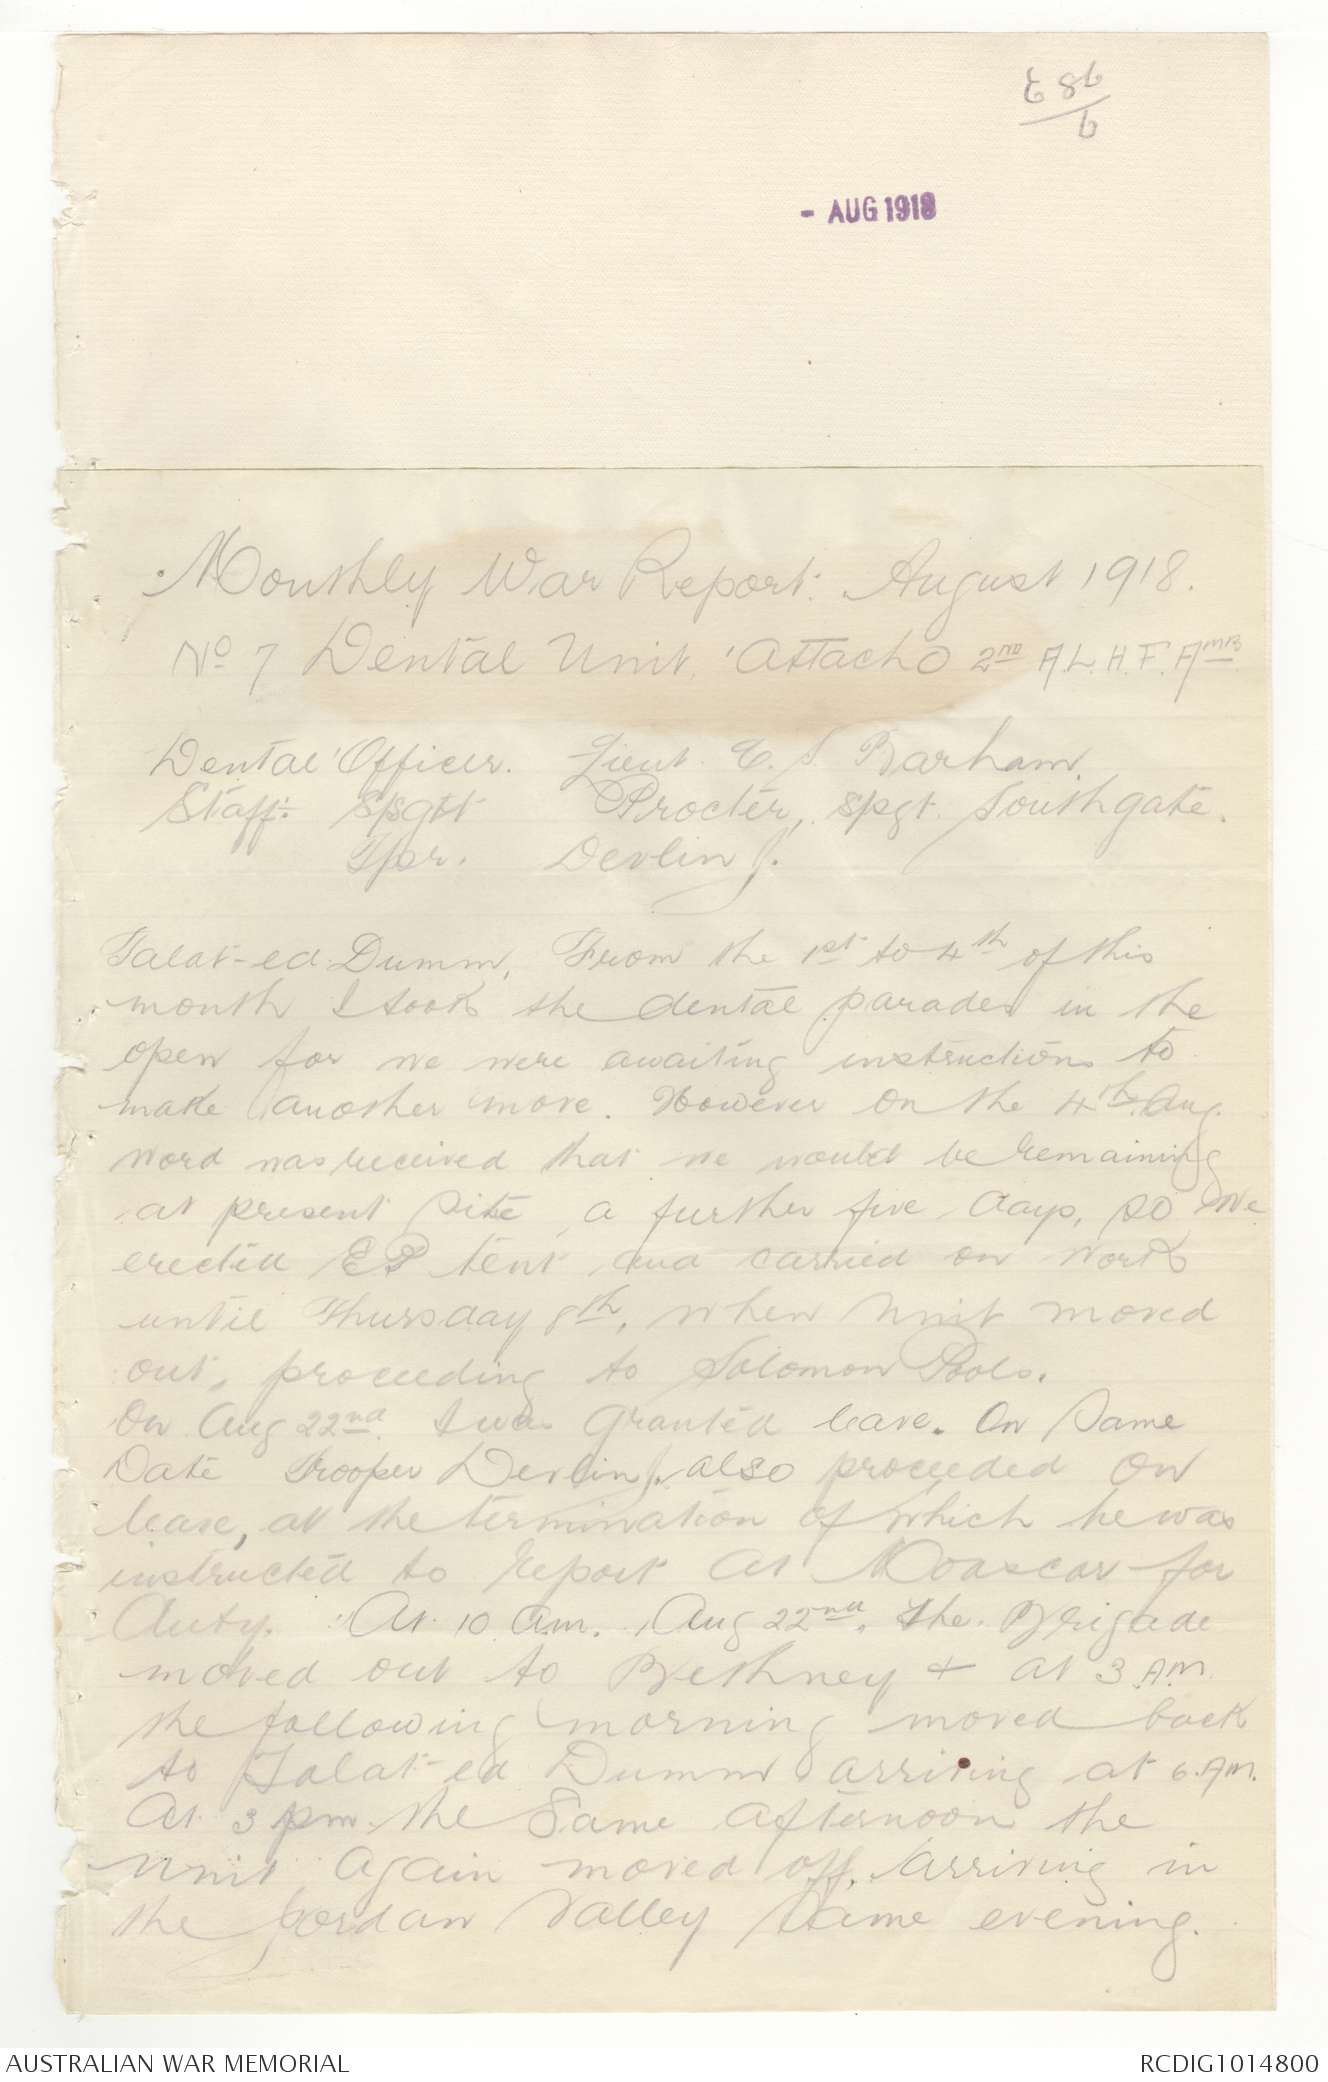 - AUG 1918
Monthly War Report. August 1918.
No 7 Dental Unit, Attachd 2nd A.L.H.F. Amb
Dental Officer. Lieut. E. S. Barham.
Staff: S/Sgt Procter, S/Sgt. Southgate.
Tpr. Devlin J.
Talat-ed-Dumm. From the 1st to 4th of this
month I took the dental parades in the
open for we were awaiting instructions to
make another move. However on the 4th Aug.
word was received that we would be remaining
at present site a further five days, so we
erected EP tent and carried on work
until Thursday 8th, when Unit moved
out, proceeding to Solomon Pools.
On Aug 22nd. I was granted leave. On Same
Date Trooper Devlin J. also proceeded on
leave, at the termination of which he was
instructed to report at Moascar for
duty. At 10 a.m. Aug 22nd. the Brigade
moved out to Bethney + at 3 A.M.
the following morning moved back
to Talat-ed Dumm arriving at 6 A.M.
At 3 pm. the Same afternoon the
Unit again moved off, arriving in
the Jordan Valley Same evening.
AUSTRALIAN WAR MEMORIAL
RCDIG1014800